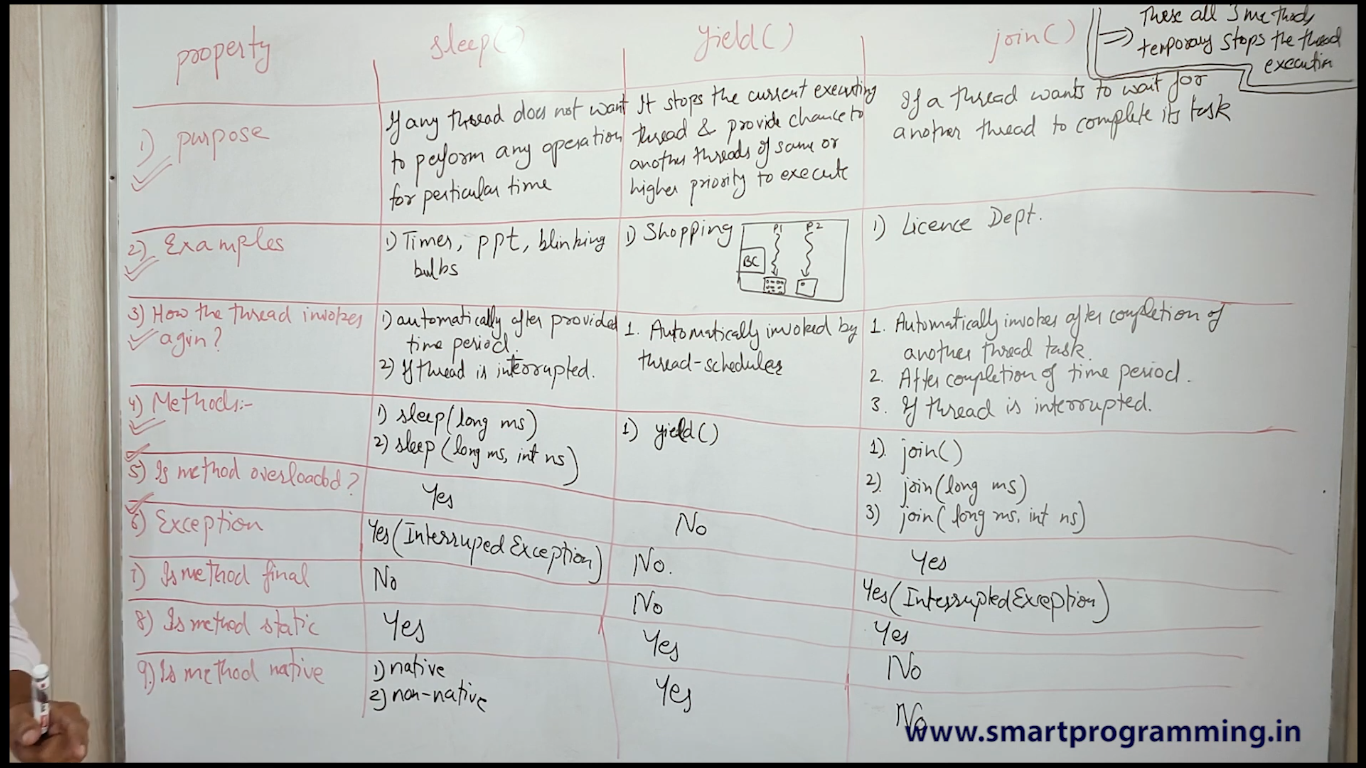 property
sleep()
yield()
join()
These all 3 methods
=> temporary stops the thread
execution
1) purpose
If any thread does not want
to perform any operation
for perticular time
It stops the current executing
thread & provide chance to
another threads of same or
higher priority to execute
If a thread wants to wait for
another thread to complete its task
2) Examples
1) Timer, ppt, blinking
bulbs
1) Shopping
P1 P2
BC
1) Licence Dept.
3) How the thread invokes
agin?
1) automatically after provided
time period.
2) If thread is interrupted.
1. Automatically invoked by
thread-scheduler
1. Automatically invokes after completion of
another thread task.
2. After completion of time period.
3. If thread is interrupted.
4) Methods:-
1) sleep(long ms)
2) sleep(long ms, int ns)
1) yield()
1). join()
2). join(long ms)
3) join(long ms, int ns)
5) Is method overloaded?
Yes
No
Yes
6) Exception
Yes(InterrupedException)
No.
Yes(InterruptedException)
7) Is method final
No
No
Yes
8) Is method static
Yes
Yes
No
9.) Is method native
1) native
2) non-native
Yes
No
www.smartprogramming.in